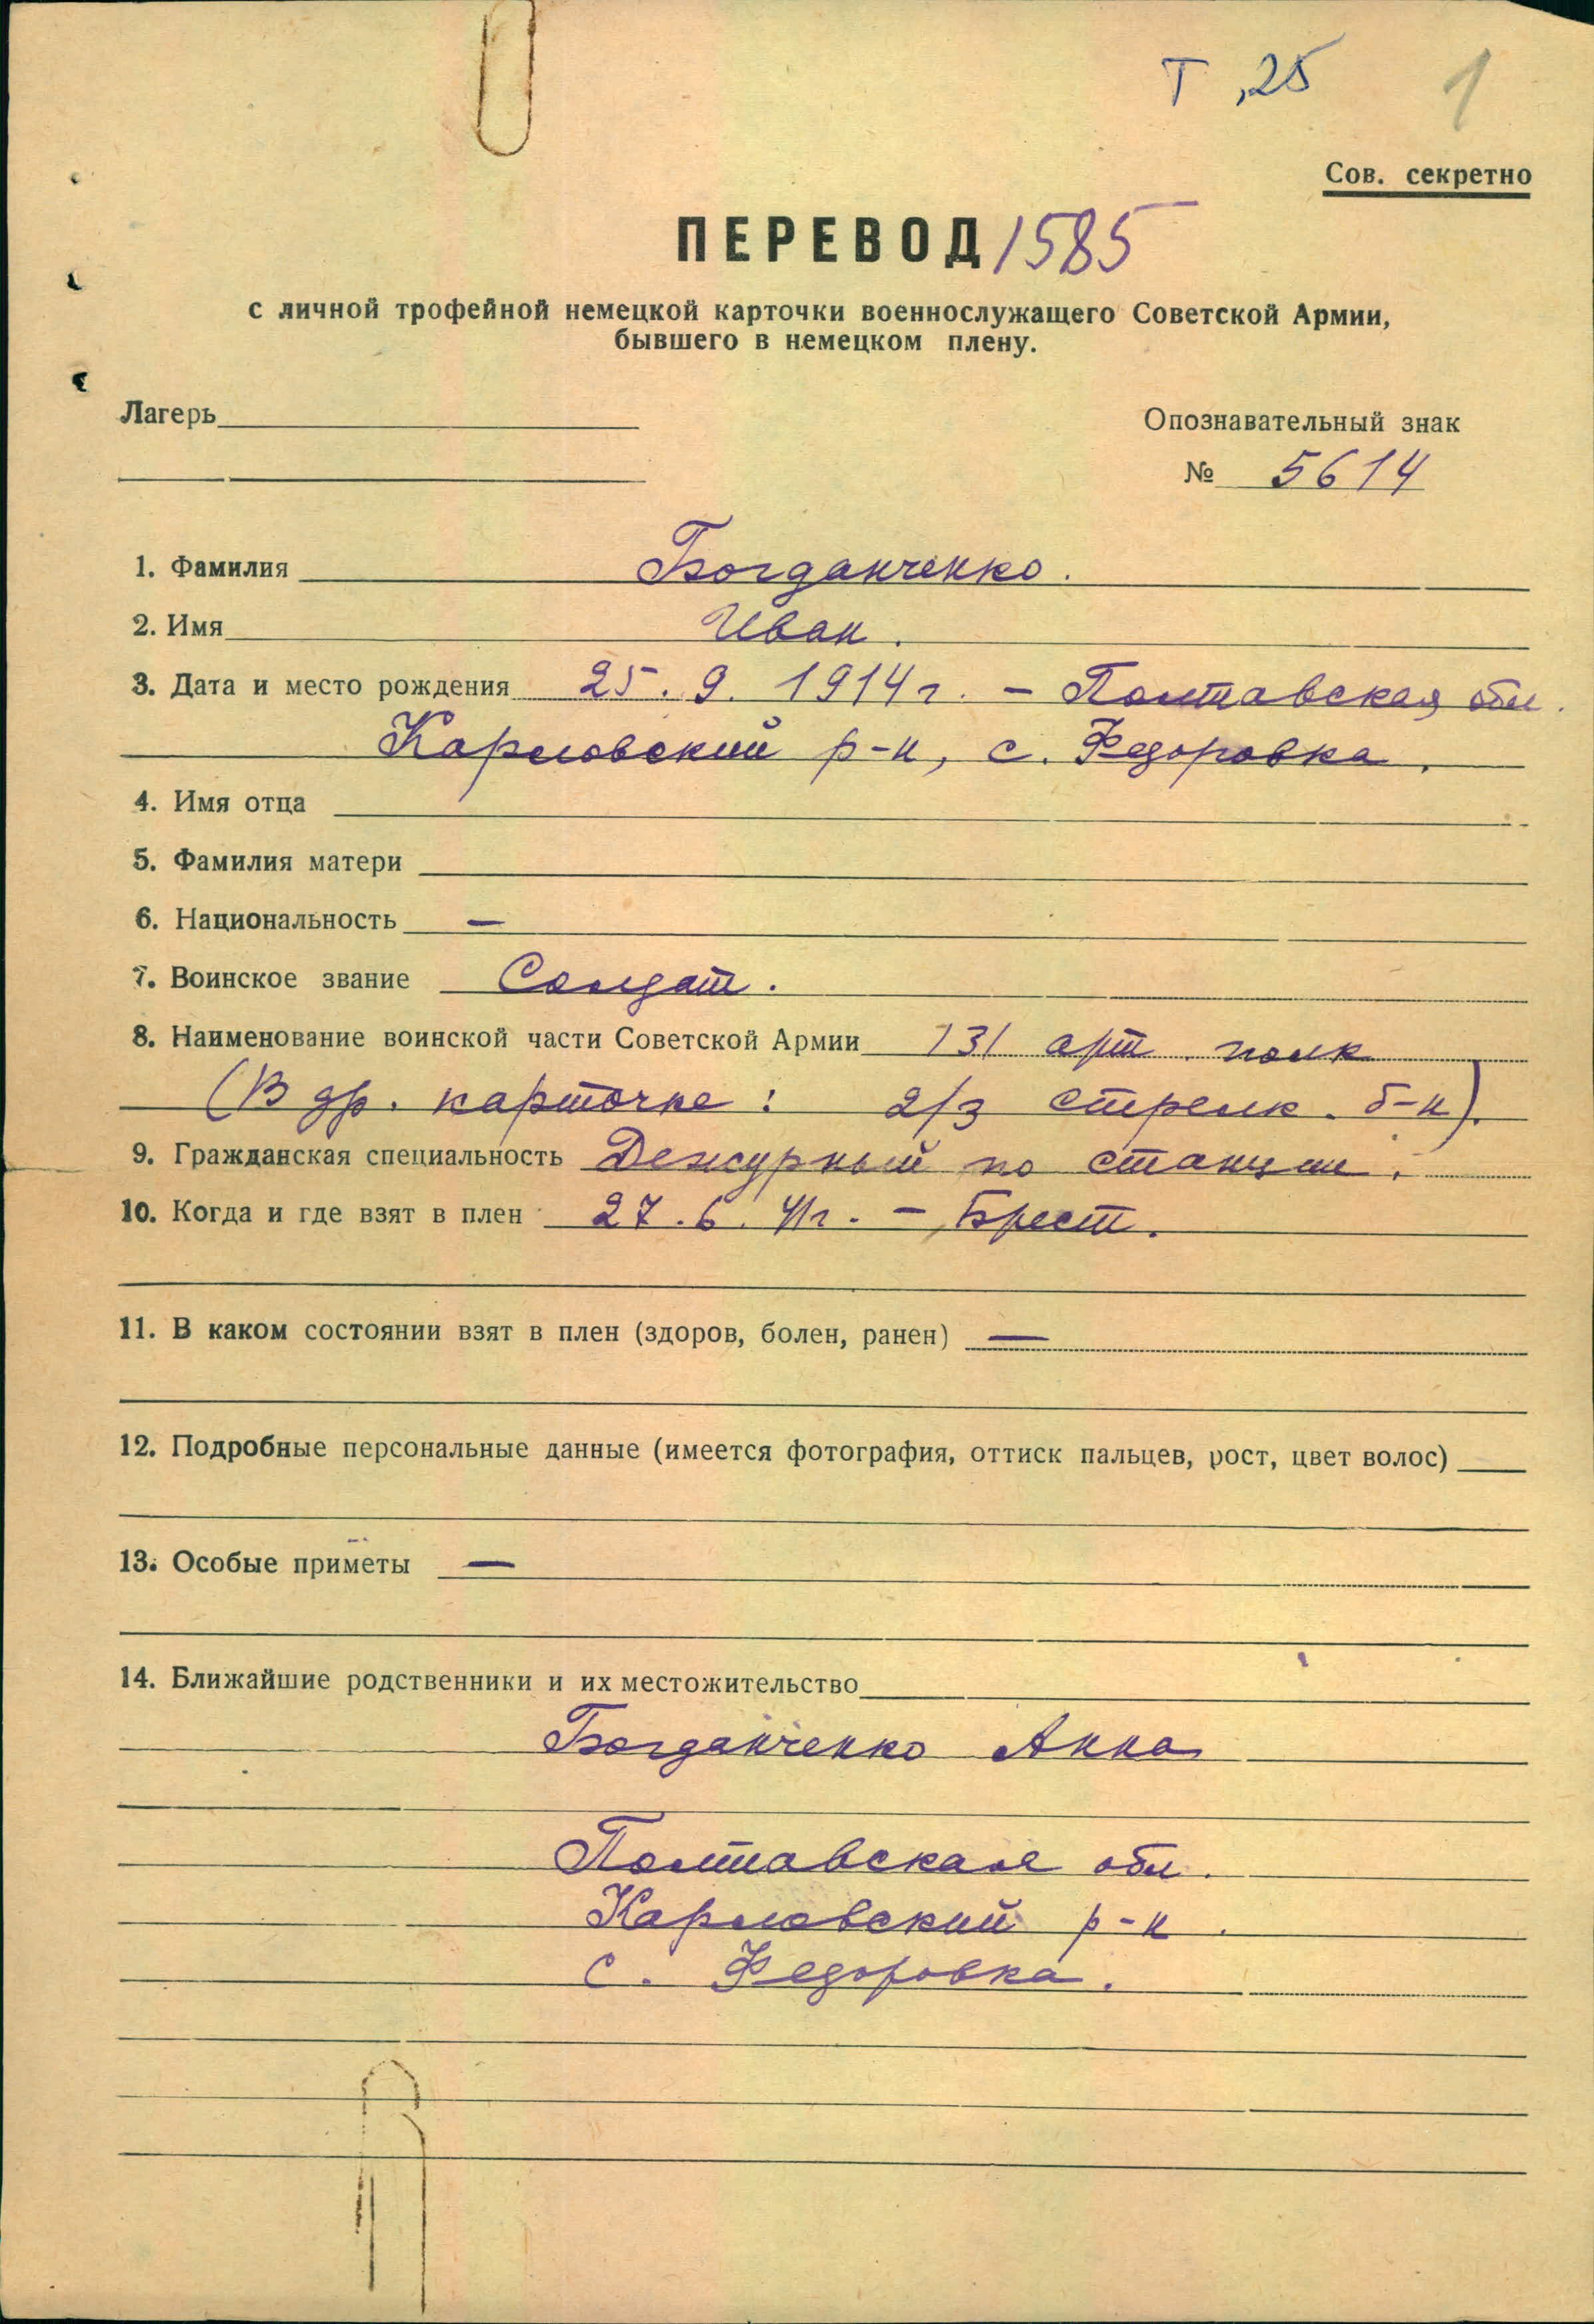 Т ,25 1
Сов. секретно
ПЕРЕВОД 1585
с личной трофейной немецкой карточки военнослужащего Советской Армии,
бывшего в немецком плену.
Лагерь
Опознавательный знак
№ 5614
1. Фамилия Богданченко.
2. Имя Иван.
3. Дата и место рождения 25.9.1914 г. – Полтавская обл.
Карловский р-н, с. Федоровка.
4. Имя отца
5. Фамилия матери
6. Национальность —
7. Воинское звание Солдат.
8. Наименование воинской части Советской Армии 131 арт. полк
(В др. карточке: 2/3 стрелк. б-н).
9. Гражданская специальность Дежурный по станции.
10. Когда и где взят в плен 27.6.41г. – Брест.
11. В каком состоянии взят в плен (здоров, болен, ранен) —
12. Подробные персональные данные (имеется фотография, оттиск пальцев, рост, цвет волос)
13. Особые приметы —
14. Ближайшие родственники и их местожительство
Богданченко Анна
Полтавская обл.
Карловский р-н.
с. Федоровка.